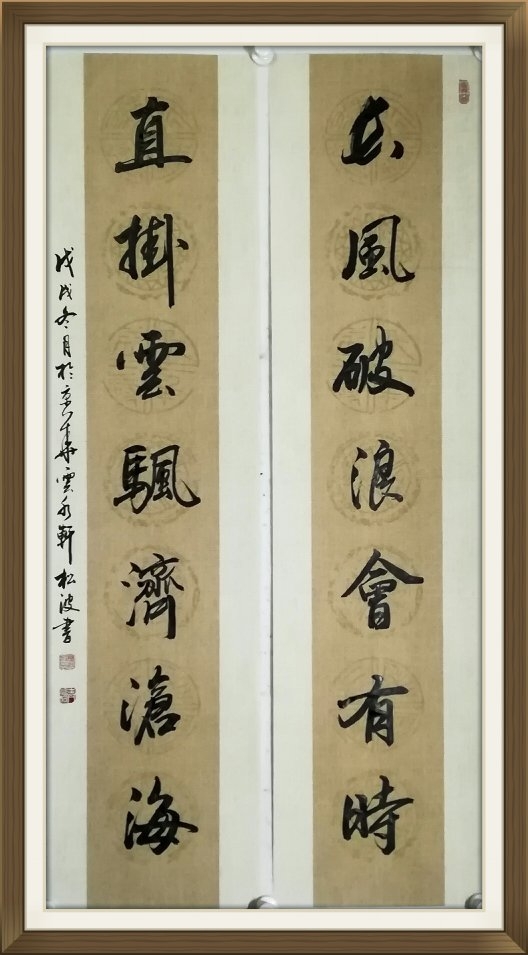 長風破浪會有時
直掛雲颿濟滄海
戊戌冬月於京華雲水軒松波書